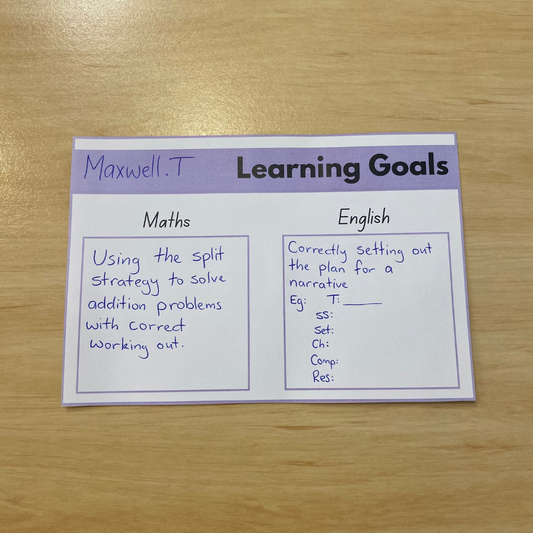 Maxwell.T
Learning Goals
Maths
Using the split
strategy to solve
addition problems
with correct
working out.
English
Correctly setting out
the plan for a
narrative
Eg: T: ______
SS:
Set:
Ch:
Comp:
Res: